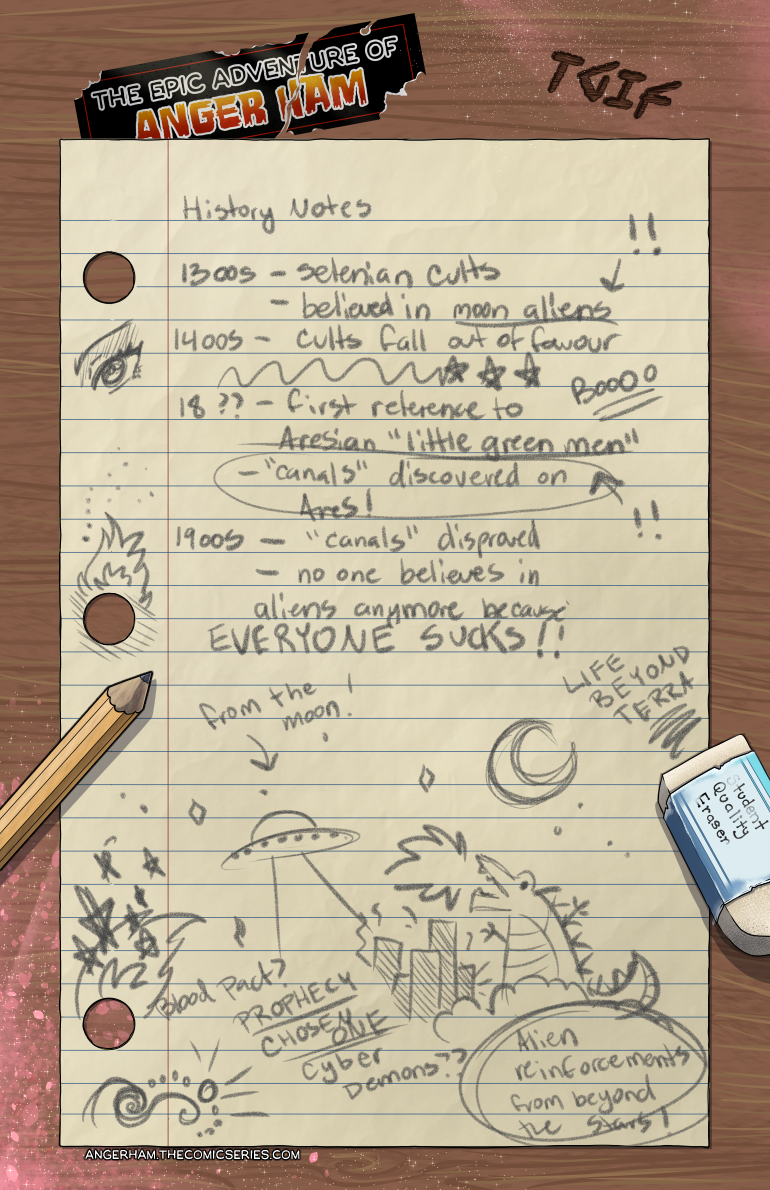 THE EPIC ADVENTURE OF
ANGER HAM
TGIF
History Notes
!!
1300s - selenian cults
- believed in moon aliens
1400s - cults fall out of favour
Boooo
18?? - first reference to
Aresian "little green men"
- "canals" discovered on
Ares!
!!
1900s - "canals" disproved
- no one believes in
aliens anymore because
EVERYONE SUCKS!!
LIFE
BEYOND
TERRA
from the
moon!
Student
Quality
Eraser
Blood Pact?
PROPHECY
CHOSEN
ONE
Cyber
Demons??
Alien
reinforcements
from beyond
the stars!
ANGERHAM.THECOMICSERIES.COM